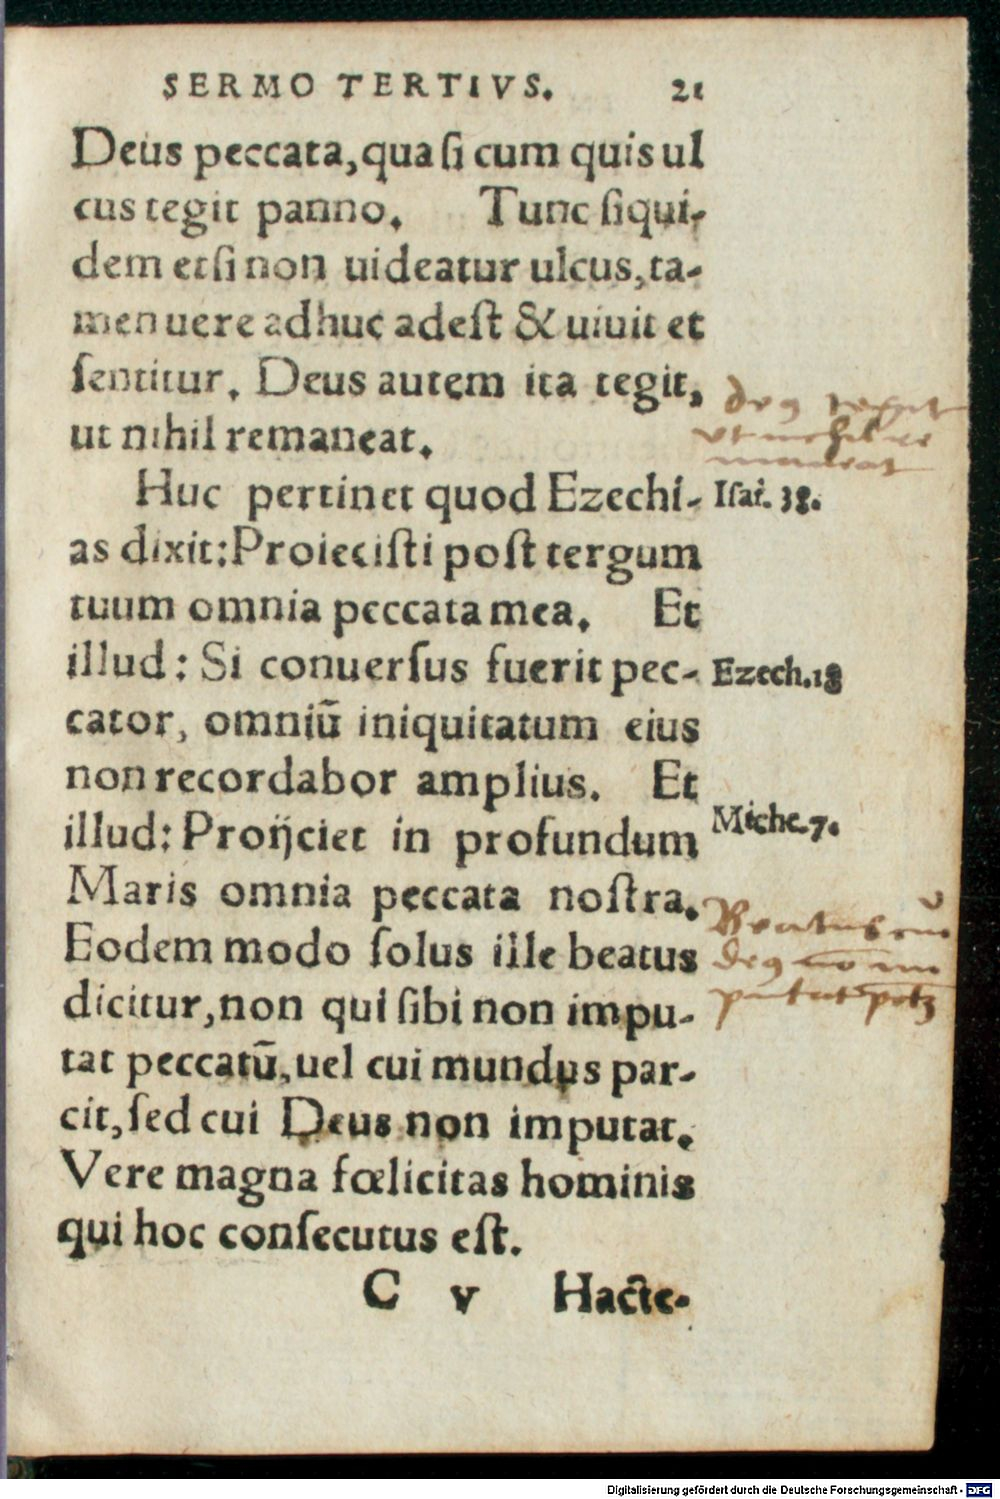 SERMO TERTIVS. 21
Deus peccata, qua si cum quis ul
cus tegit panno. Tunc siqui-
dem etsi non uideatur ulcus, ta-
men uere adhuc adest & uiuit et
sentitur. Deus autem ita tegit,
ut nihil remaneat.
Huc pertinet quod Ezechi-
as dixit: Proiecisti post tergum
tuum omnia peccata mea. Et
illud: Si conuersus fuerit pec-
cator, omniũ iniquitatum eius
non recordabor amplius. Et
illud: Proijciet in profundum
Maris omnia peccata nostra.
Eodem modo solus ille beatus
dicitur, non qui sibi non impu-
tat peccatũ, uel cui mundus par-
cit, sed cui Deus non imputat.
Vere magna fœlicitas hominis
qui hoc consecutus est.
C v Hacte-
deus tegit
ut nihil re
maneat
Isai. 38.
Ezech. 18
Miche. 7.
Beatus cui
deus non im
putat
Digitalisierung gefördert durch die Deutsche Forschungsgemeinschaft - DFG